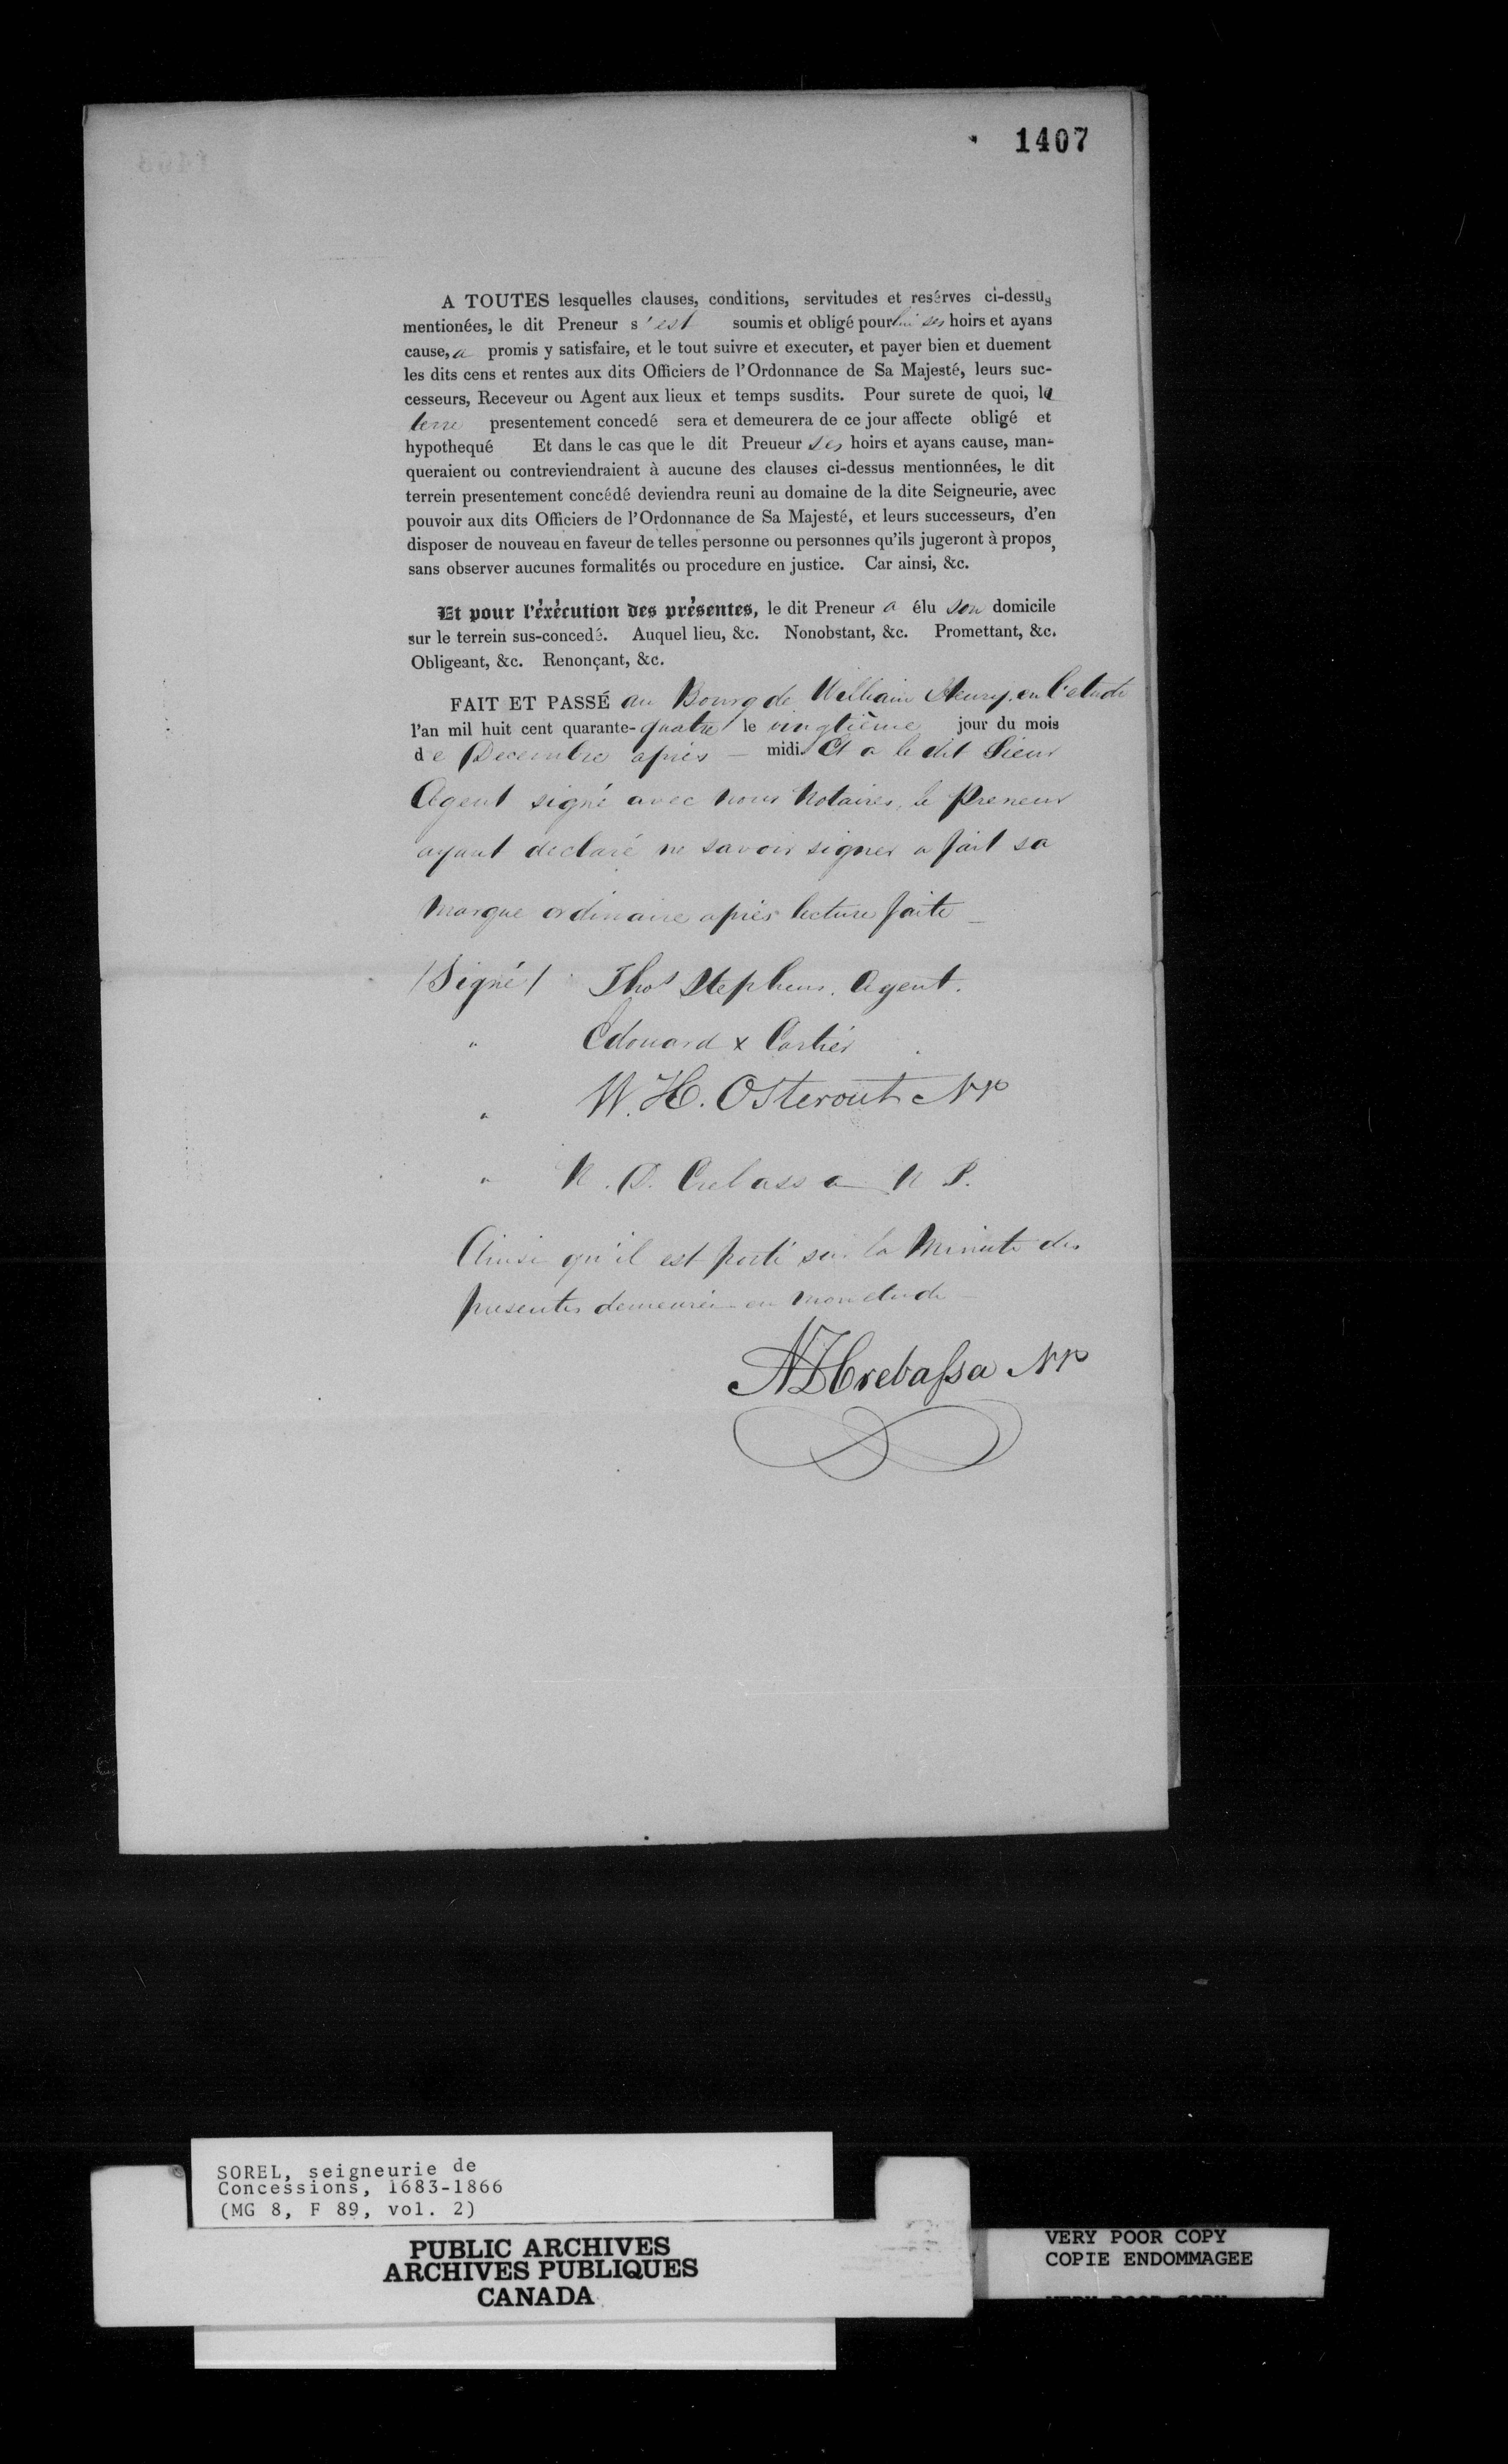 1407
A TOUTES lesquelles clauses, conditions, servitudes et resérves ci-dessus
mentionées, le dit Preneur s'est soumis et obligé pour lui ses hoirs et ayans
cause, a promis y satisfaire, et le tout suivre et executer, et payer bien et duement
les dits cens et rentes aux dits Officiers de l'Ordonnance de Sa Majesté, leurs suc-
cesseurs, Receveur ou Agent aux lieux et temps susdits. Pour surete de quoi, la
terre presentement concedé sera et demeurera de ce jour affecte obligé et
hypothequé Et dans le cas que le dit Preueur ses hoirs et ayans cause, man-
queraient ou contreviendraient à aucune des clauses ci-dessus mentionnées, le dit
terrein presentement concédé deviendra reuni au domaine de la dite Seigneurie, avec
pouvoir aux dits Officiers de l'Ordonnance de Sa Majesté, et leurs successeurs, d'en
disposer de nouveau en faveur de telles personne ou personnes qu'ils jugeront à propos,
sans observer aucunes formalités ou procedure en justice. Car ainsi, &c.
Et pour l'éxécution des présentes, le dit Preneur a élu son domicile
sur le terrein sus-concedé. Auquel lieu, &c. Nonobstant, &c. Promettant, &c.
Obligeant, &c. Renonçant, &c.
FAIT ET PASSÉ au Bourg de William Henry, en l'etude
l'an mil huit cent quarante-quatre le vingtième jour du mois
de Decembre après — midi. Et a le dit Sieur
Agent signé avec nous Notaires, le Preneur
ayant declaré ne savoir signer a fait sa
marque ordinaire après lecture faite _
/Signé/ Thos Stephens. Agent.
" Edouard x Cartier
" W. H. Osterout NP
" N. D. Crebassa N P.
Ainsi qu'il est porté sur la Minute des
presentes demeurée en mon etude —
NDCrebassa NP
SOREL, seigneurie de
Concessions, 1683-1866
(MG 8, F 89, vol. 2)
PUBLIC ARCHIVES
ARCHIVES PUBLIQUES
CANADA
VERY POOR COPY
COPIE ENDOMMAGEE